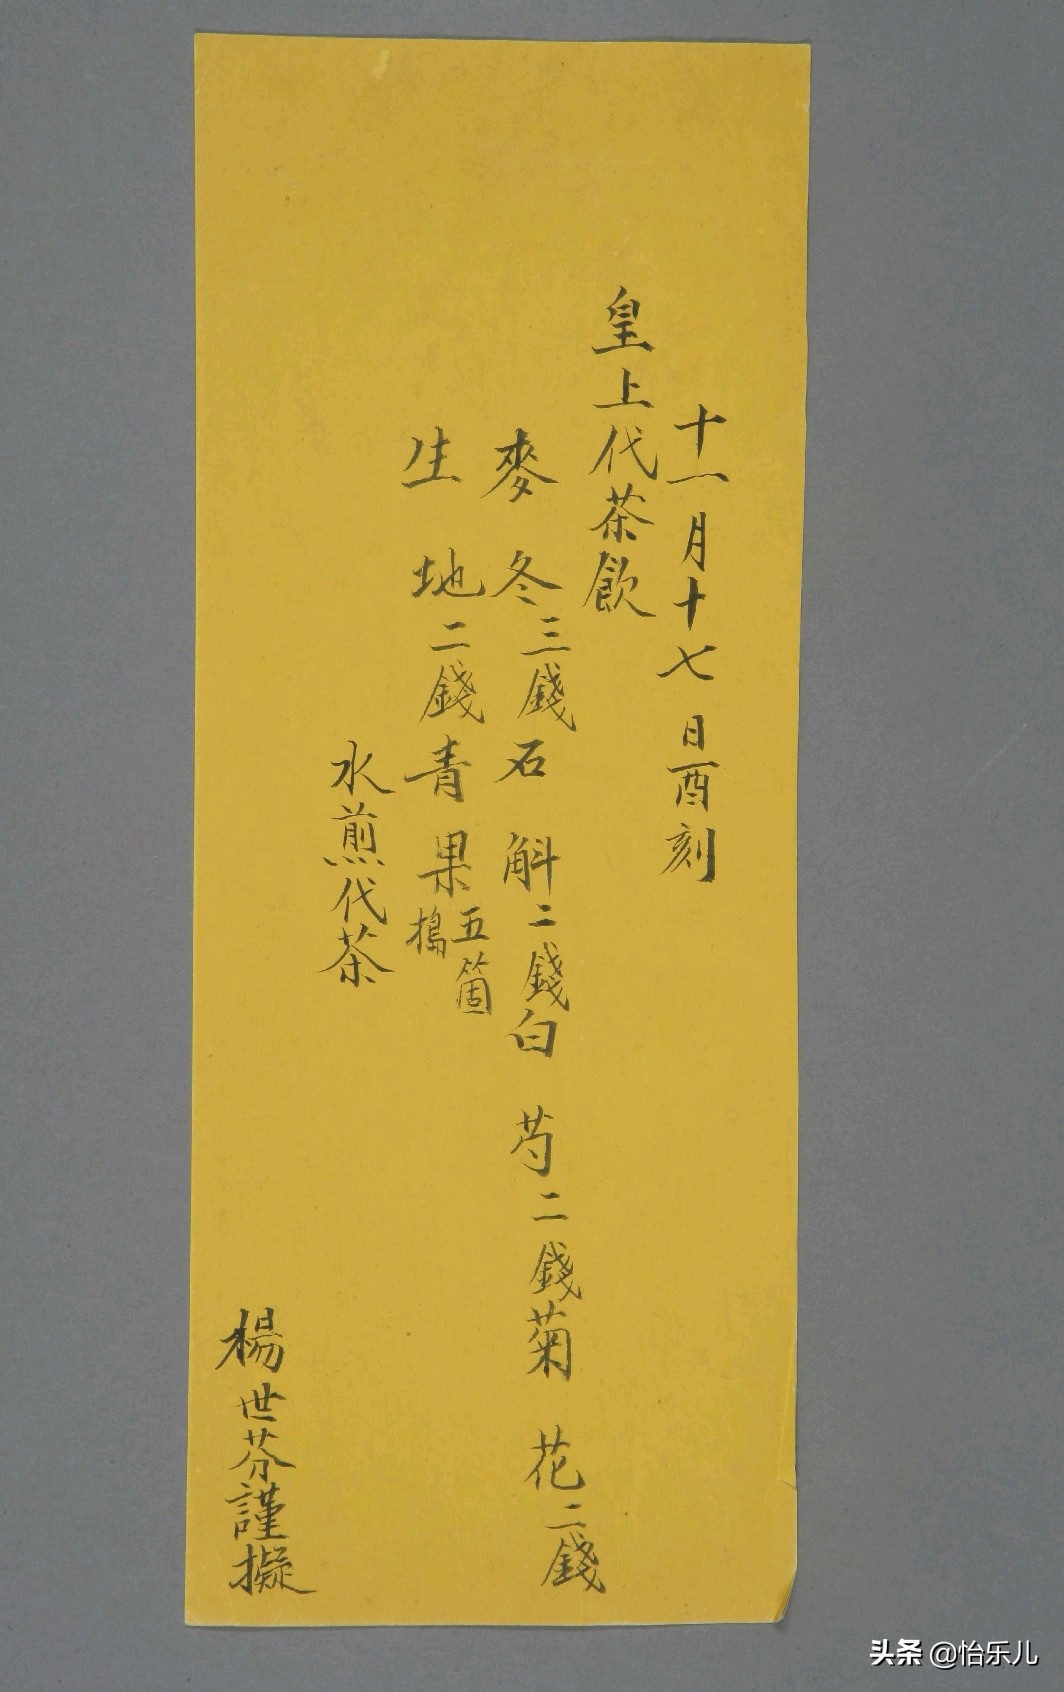 十一月十七日酉刻
皇上代茶飲
麥冬三錢石斛二錢白芍二錢菊花二錢
生地二錢青果五箇搗
水煎代茶
楊世芬謹擬
头条 @怡乐儿